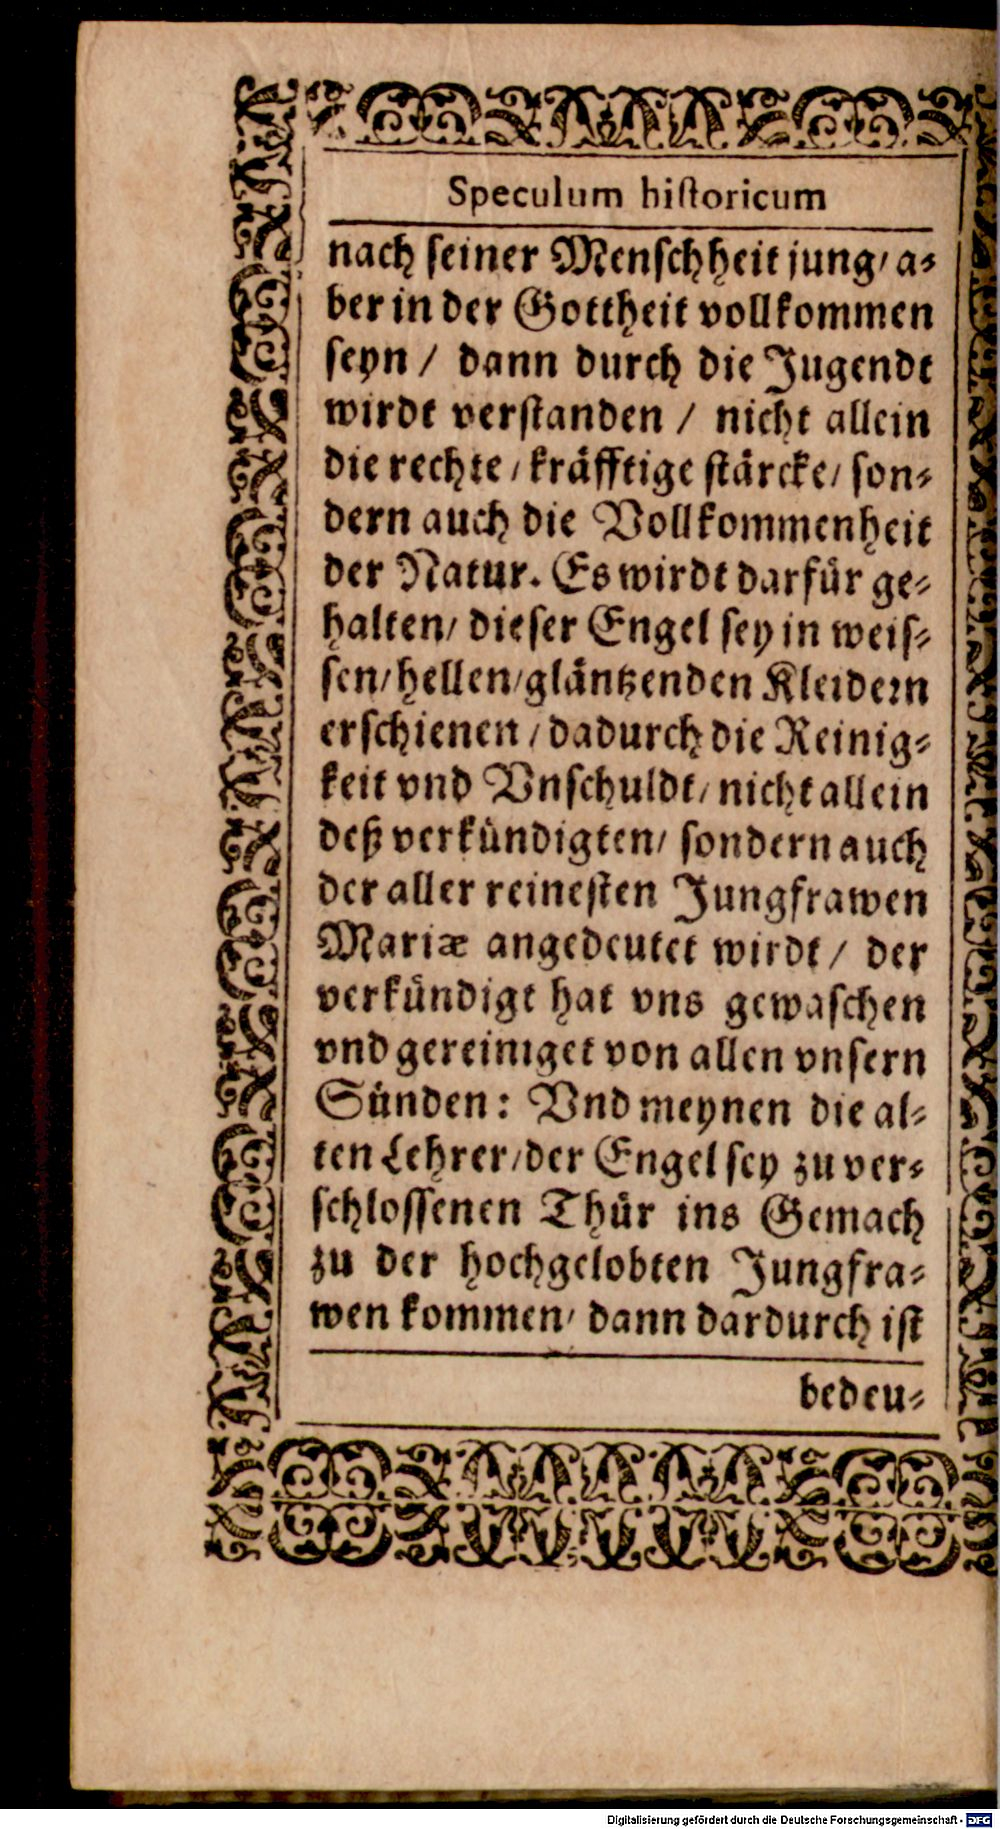 Speculum hiſtoricum
nach ſeiner Menſchheit jung/ a⸗
ber in der Gottheit vollkommen
ſeyn / dann durch die Jugendt
wirdt verſtanden / nicht allein
die rechte / kräfftige ſtärcke / ſon⸗
dern auch die Vollkommenheit
der Natur. Es wirdt darfür ge⸗
halten / dieſer Engel ſey in weiſ⸗
ſen / hellen / gläntzenden Kleidern
erſchienen / dadurch die Reinig⸗
keit vnd Vnſchuldt / nicht allein
deß verkündigten / ſondern auch
der aller reineſten Jungfrawen
Mariæ angedeutet wirdt / der
verkündigt hat vns gewaſchen
vnd gereiniget von allen vnſern
Sünden: Vnd meynen die al⸗
ten Lehrer / der Engel ſey zu ver⸗
ſchloſſenen Thür ins Gemach
zu der hochgelobten Jungfra⸗
wen kommen / dann dardurch iſt
bedeu⸗
Digitalisierung gefördert durch die Deutsche Forschungsgemeinschaft - DFG